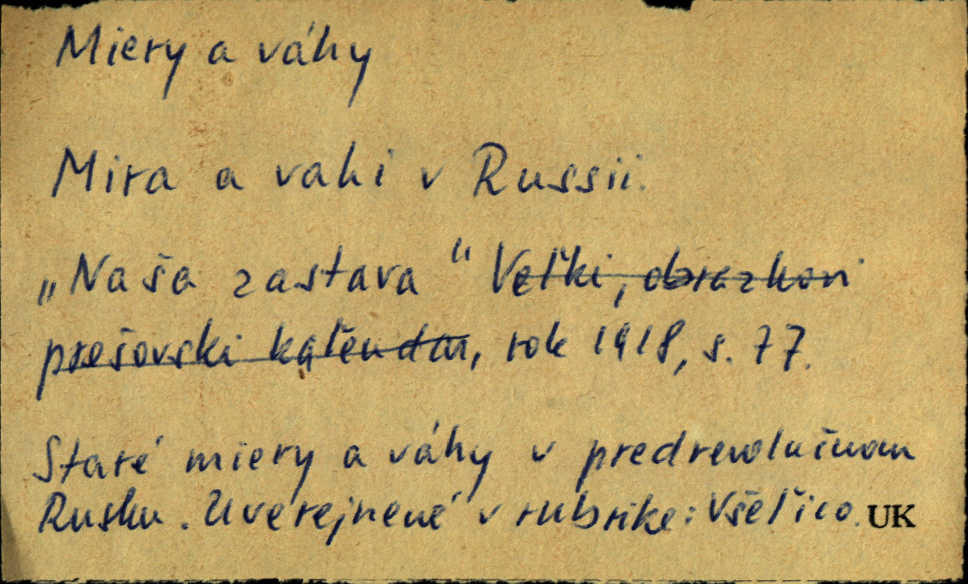 Miery a váhy
Mira a vahi v Russii.
„Naša zastava“ Veľki, obrazkovi
prešovski kaľendar, rok 1918, s. 77.
Staré miery a váhy v predrevolučnom
Rusku. Uverejnené v rubrike: Všeľico. UK